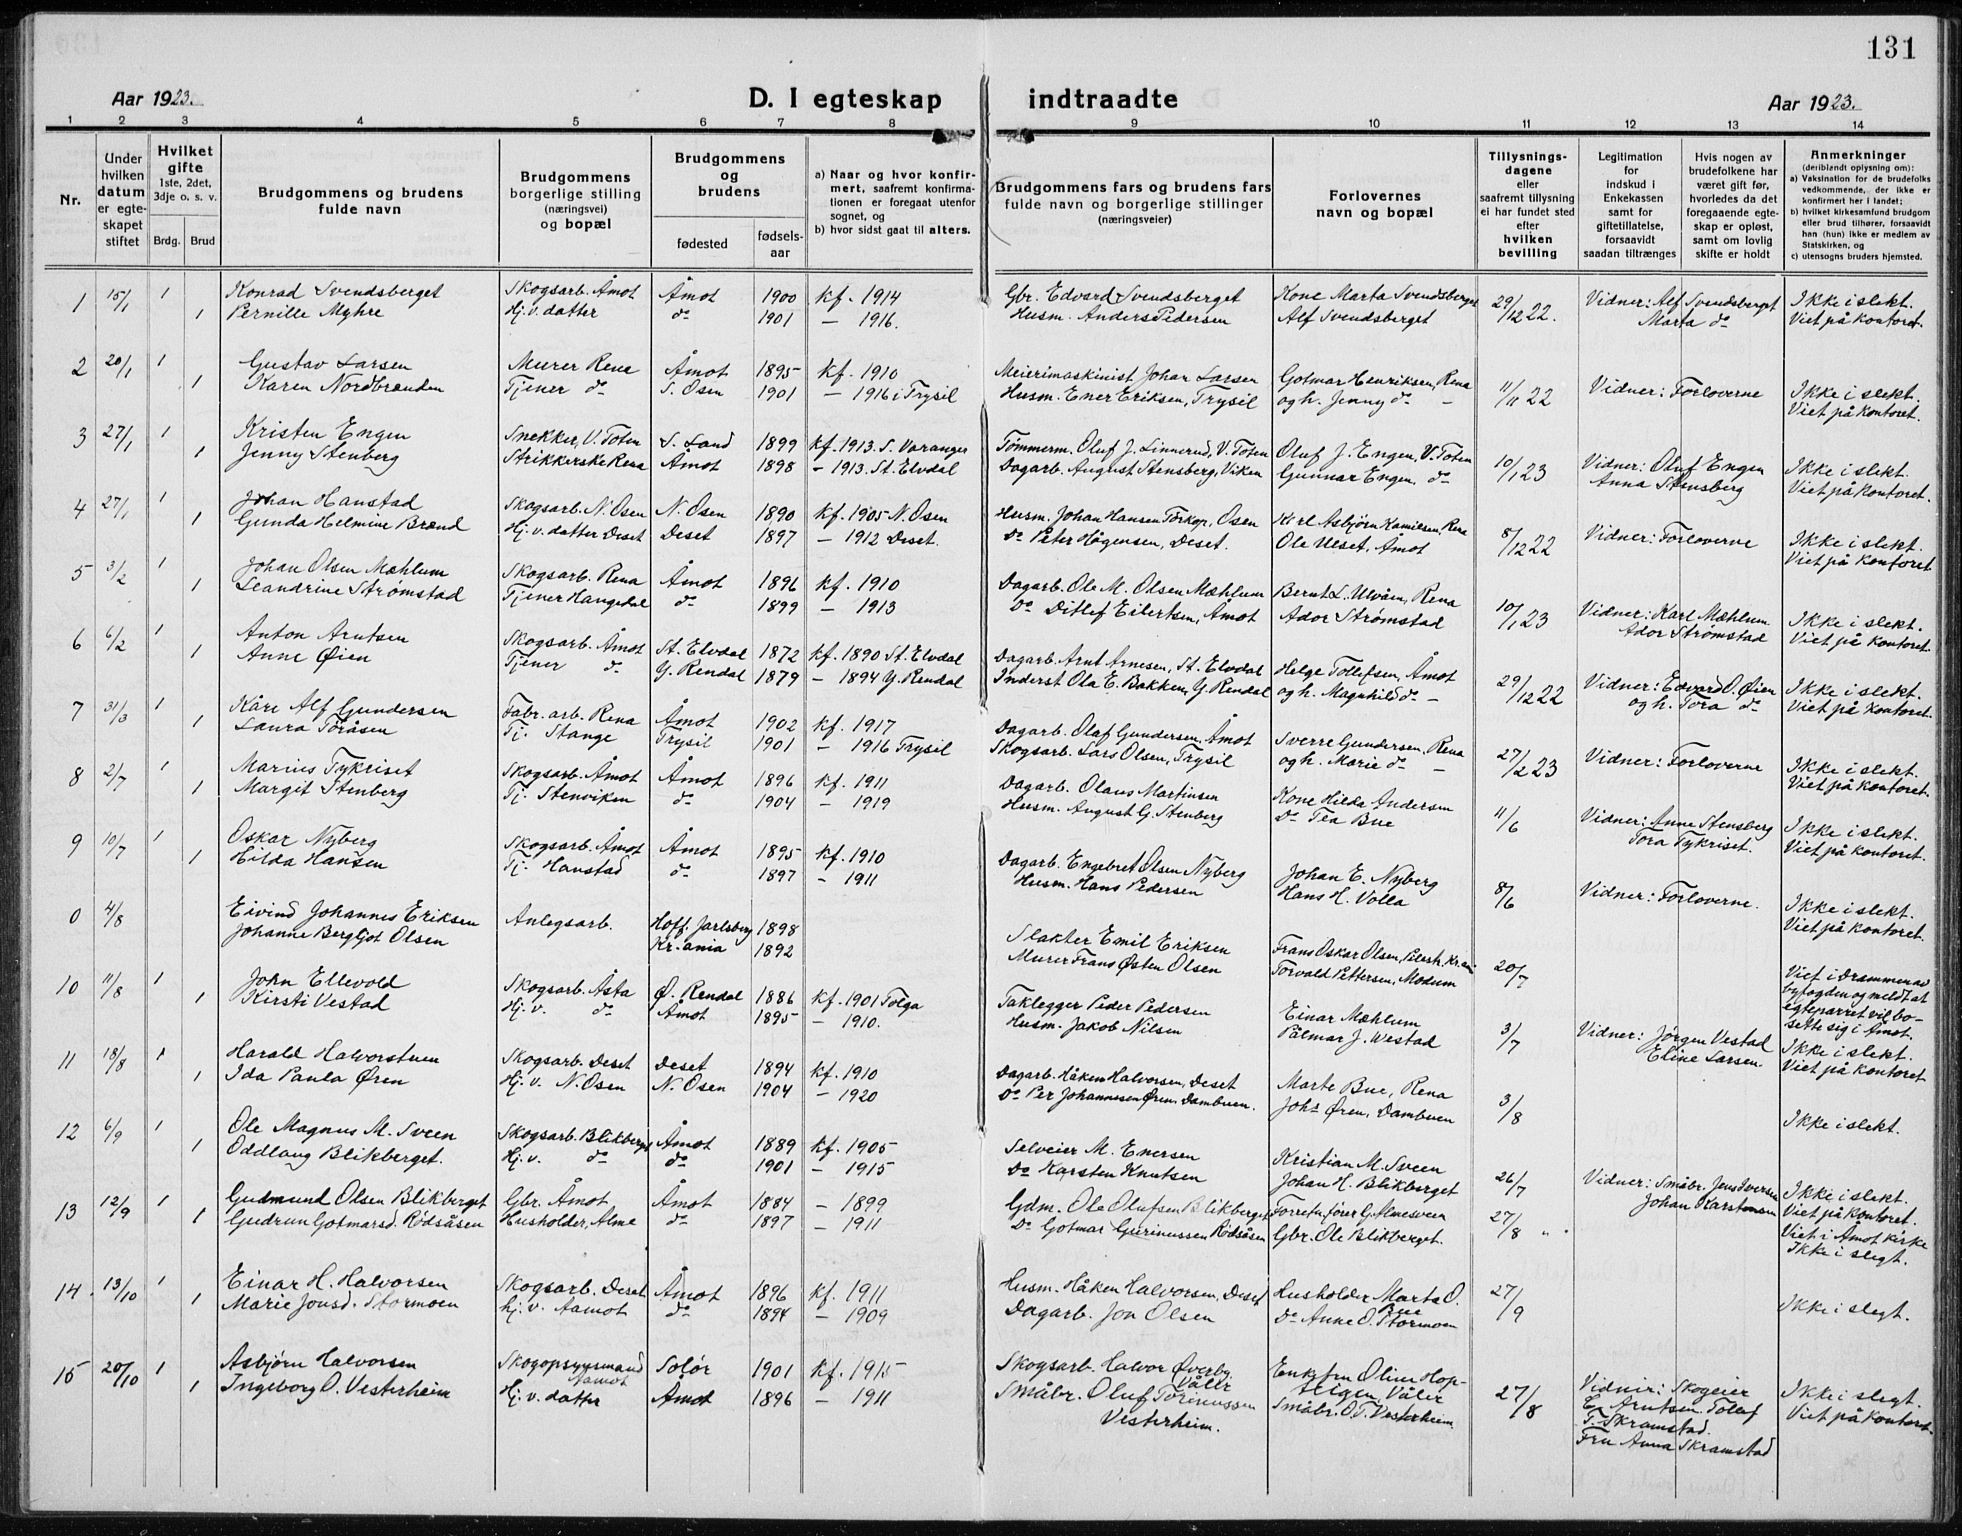 131
Aar 1923.
D. I egteskap indtraadte
Aar 1923.
1 2 3 4 5 6 7 8 9 10 11 12 13 14
Nr.
Under hvilken datum er egteskapet stiftet
Hvilket gifte 1ste, 2det, 3dje o. s. v.
Brdg. Brud
Brudgommens og brudens fulde navn
Brudgommens borgerlige stilling (næringsvei) og bopæl
Brudgommens og brudens
fødested fødsels-aar
a) Naar og hvor konfirmert, saafremt konfirmationen er foregaat utenfor sognet, og
b) hvor sidst gaat til alters.
Brudgommens fars og brudens fars fulde navn og borgerlige stillinger (næringsveier)
Forlovernes navn og bopæl
Tillysningsdagene eller saafremt tillysning ei har fundet sted efter hvilken bevilling
Legitimation for indskud i Enkekassen samt for giftetillatelse, forsaavidt saadan tiltrænges
Hvis nogen av brudefolkene har været gift før, hvorledes da det foregaaende egteskap er opløst, samt om lovlig skifte er holdt
Anmerkninger (deriblandt oplysning om):
a) Vaksination for de brudefolks vedkommende, der ikke er konfirmert her i landet;
b) hvilket kirkesamfund brudgom eller brud tilhører, forsaavidt han (hun) ikke er medlem av Statskirken, og
c) utensogns bruders hjemsted.
1 15/1 1 Konrad Svendsberget Skogsarb. Åmot Åmot 1900 kf. 1914 Gbr. Edvard Svendsberget Kone Marta Svendsberget 29/12 22. Vidner: Alf Svendsberget Ikke i slekt.
1 Pernille Myhre Hj. v. datter do 1901 — 1916. Husm. Anders Pedersen Alf Svendsberget Marta do Viet på kontoret.
2 20/1 1 Gustav Larsen Murer Rena Åmot 1895 kf. 1910 Meierimaskinist Johar Larsen Gotmar Henriksen, Rena 11/11 22 Vidner: Forloverne Ikke i slekt.
1 Karen Nordbrænden Tjener do S. Osen 1901 — 1916 i Trysil Husm. Ener Eriksen, Trysil og h. Jenny do — Viet på kontoret.
3 27/1 1 Kristen Engen Snekker, V. Toten S. Land 1899 kf. 1913. S. Varanger Tømmerm. Oluf J. Linnerud, V. Toten Oluf J. Engen, V. Toten 10/1 23 Vidner: Oluf Engen Ikke i slekt.
1 Jenny Stenberg Strikkerske Rena Åmot 1898 — 1913. St. Elvdal Dagarb. August Stensberg, Viken Gunnar Engen, do Anna Stensberg Viet på kontoret.
4 27/1 1 Johan Hanstad Skogsarb. N. Osen N. Osen 1890 kf. 1905 N. Osen Husm. Johan Hansen Torkop, Osen Karl Asbjørn Kamilsen, Rena 8/12 22 Vidner: Forloverne Ikke i slekt.
1 Gunda Helmine Brænd Hj. v. datter Deset Deset 1897 — 1912 Deset. Do Peter Hågensen, Deset. Ole Ulset, Åmot Viet på kontoret
5 3/2 1 Johan Olsen Mæhlum Skogsarb. Rena Åmot 1896 kf. 1910 Dagarb. Ole M. Olsen Mæhlum Bernt L. Ulvåen, Rena 10/1 23 Vidner: Karl Mæhlum Ikke i slekt.
1 Leandrine Strømstad Tjener Haugedal do 1899 — 1913 Do Ditlef Eilertsen, Åmot Ador Strømstad Ador Strømstad Viet på kontoret.
6 6/2 1 Anton Arntsen Skogsarb. Åmot St. Elvdal 1872 kf. 1890 St. Elvdal Dagarb. Arnt Arnesen, St. Elvdal Helge Tollefsen, Åmot 29/12 22 Vidner: Edvard O. Øien Ikke i slekt.
1 Anne Øien Tjener do Y. Rendal 1879 — 1894 Y. Rendal Inderst Ola E. Bakken, Y. Rendal og h. Magnhild do — og h. Tora do Viet på kontoret.
7 31/3 1 Kåre Alf Gundersen Fabr. arb. Rena Åmot 1902 kf. 1917 Dagarb. Olaf Gundersen, Åmot Sverre Gundersen, Rena 27/2 23 Vidner: Forloverne Ikke i slekt.
1 Laura Toråsen Tj. Stange Trysil 1901 — 1916 Trysil Skogsarb. Lars Olsen, Trysil og h. Marie do — Viet på kontoret.
8 2/7 1 Marius Tykriset Skogsarb. Åmot Åmot 1896 kf. 1911 Dagarb. Olaus Martinsen Kone Hilda Andersen 11/6 Vidner: Anne Stensberg Ikke i slekt.
1 Margit Stenberg Tj. Stenviken do 1904 — 1919 Husm. August G. Stenberg Do Tea Bue Tora Tykriset. Viet på kontoret.
9 10/7 1 Oskar Nyberg Skogsarb. Åmot Åmot 1895 kf. 1910 Dagarb. Engebret Olsen Nyberg Johan E. Nyberg 8/6 Vidner: Forloverne. Ikke i slekt.
1 Hilda Hansen Tj. Hanstad do 1897 — 1911 Husm. Hans Pedersen Hans H. Volla Viet på kontoret.
0 4/8 Eivind Johannes Eriksen Anlegsarb. Hoff. Jarlsberg 1898 Slakter Emil Eriksen Frans Oskar Olsen, Kr.ania 20/7 Viet i Drammen av
Johanne Bergljot Olsen Kr.ania 1892 Murer Frans Østen Olsen Torvald Pettersen, Modum byfogden og meldt at
egteparret vil bosette sig i Åmot.
10 11/8 1 John Ellevold Skogsarb. Åsta Ø. Rendal 1886 kf. 1901 Tolga Taklegger Peder Pedersen Einar Mæhlum 3/7 Vidner: Jørgen Vestad Ikke i slekt.
1 Kirsti Vestad Hj. v. do Åmot 1895 — 1910. Husm. Jakob Nilsen Palmar J. Westad Eline Larsen Viet på kontoret
11 18/8 1 Harald Halvorstuen Skogsarb. Deset Deset 1894 kf. 1910 Dagarb. Håken Halvorsen, Deset Marte Bue, Rena 3/8 Ikke i slekt.
1 Ida Paula Øren Hj. v. N. Osen N. Osen 1904 — 1920 Do Per Johannesen Øren, Dambuen. Johs Øren, Dambuen
12 6/9 1 Ole Magnus M. Sveen Skogsarb. Blikberget Åmot 1889 kf. 1905 Selveier M. Enersen Kristian M. Sveen 26/7 Vidner: Småbr. Jens Iversen Ikke i slekt.
1 Oddlaug Blikberget. Hj. v. do do 1901 — 1915 Do Karsten Knutsen Johan H. Blikberget Johan Karstensen Viet på kontoret.
13 12/9 1 Gudmund Olsen Blikberget Gbr. Åmot Åmot 1884 — 1899 Gdm. Ole Olufsen Blikberget Forretn. fører G. Almesveen 27/8 „ Viet i Åmot kirke
1 Gudrun Gotmarsd. Rødsåsen Husholder, Alme do 1897 — 1911 Do Gotmar Gurinussen Rødsåsen Gbr. Ole Blikberget. Ikke i slegt.
14. 13/10 1 Einar H. Halvorsen Skogsarb. Deset Åmot 1896 kf. 1911 Husm. Håken Halvorsen, Deset Husholder Marta O. Bue 27/9 Ikke i slegt.
1 Marie Jonsd. Stormoen hj. v. Aamot do 1894 — 1909 Dagarb. Jon Olsen Do Anne O. Stormoen
15 20/10 1 Asbjørn Halvorsen Skogopsynsmand Aamot Solør 1901 kf. 1915 Skogsarb. Halvor Øverby Våler Enkefru Oline Hopstigen, Våler 27/8 Vidnir: Skogeier Ikke i slegt.
1 Ingeborg O. Vesterheim Hj. v. datter Åmot 1896 — 1911 Småbr. Oluf Torinussen Vesterheim. Småbr. O. T. Vesterheim E. Arntsen. Tollef Viet på kontoret.
T. Skramstad.
Fru Anna Skramstad